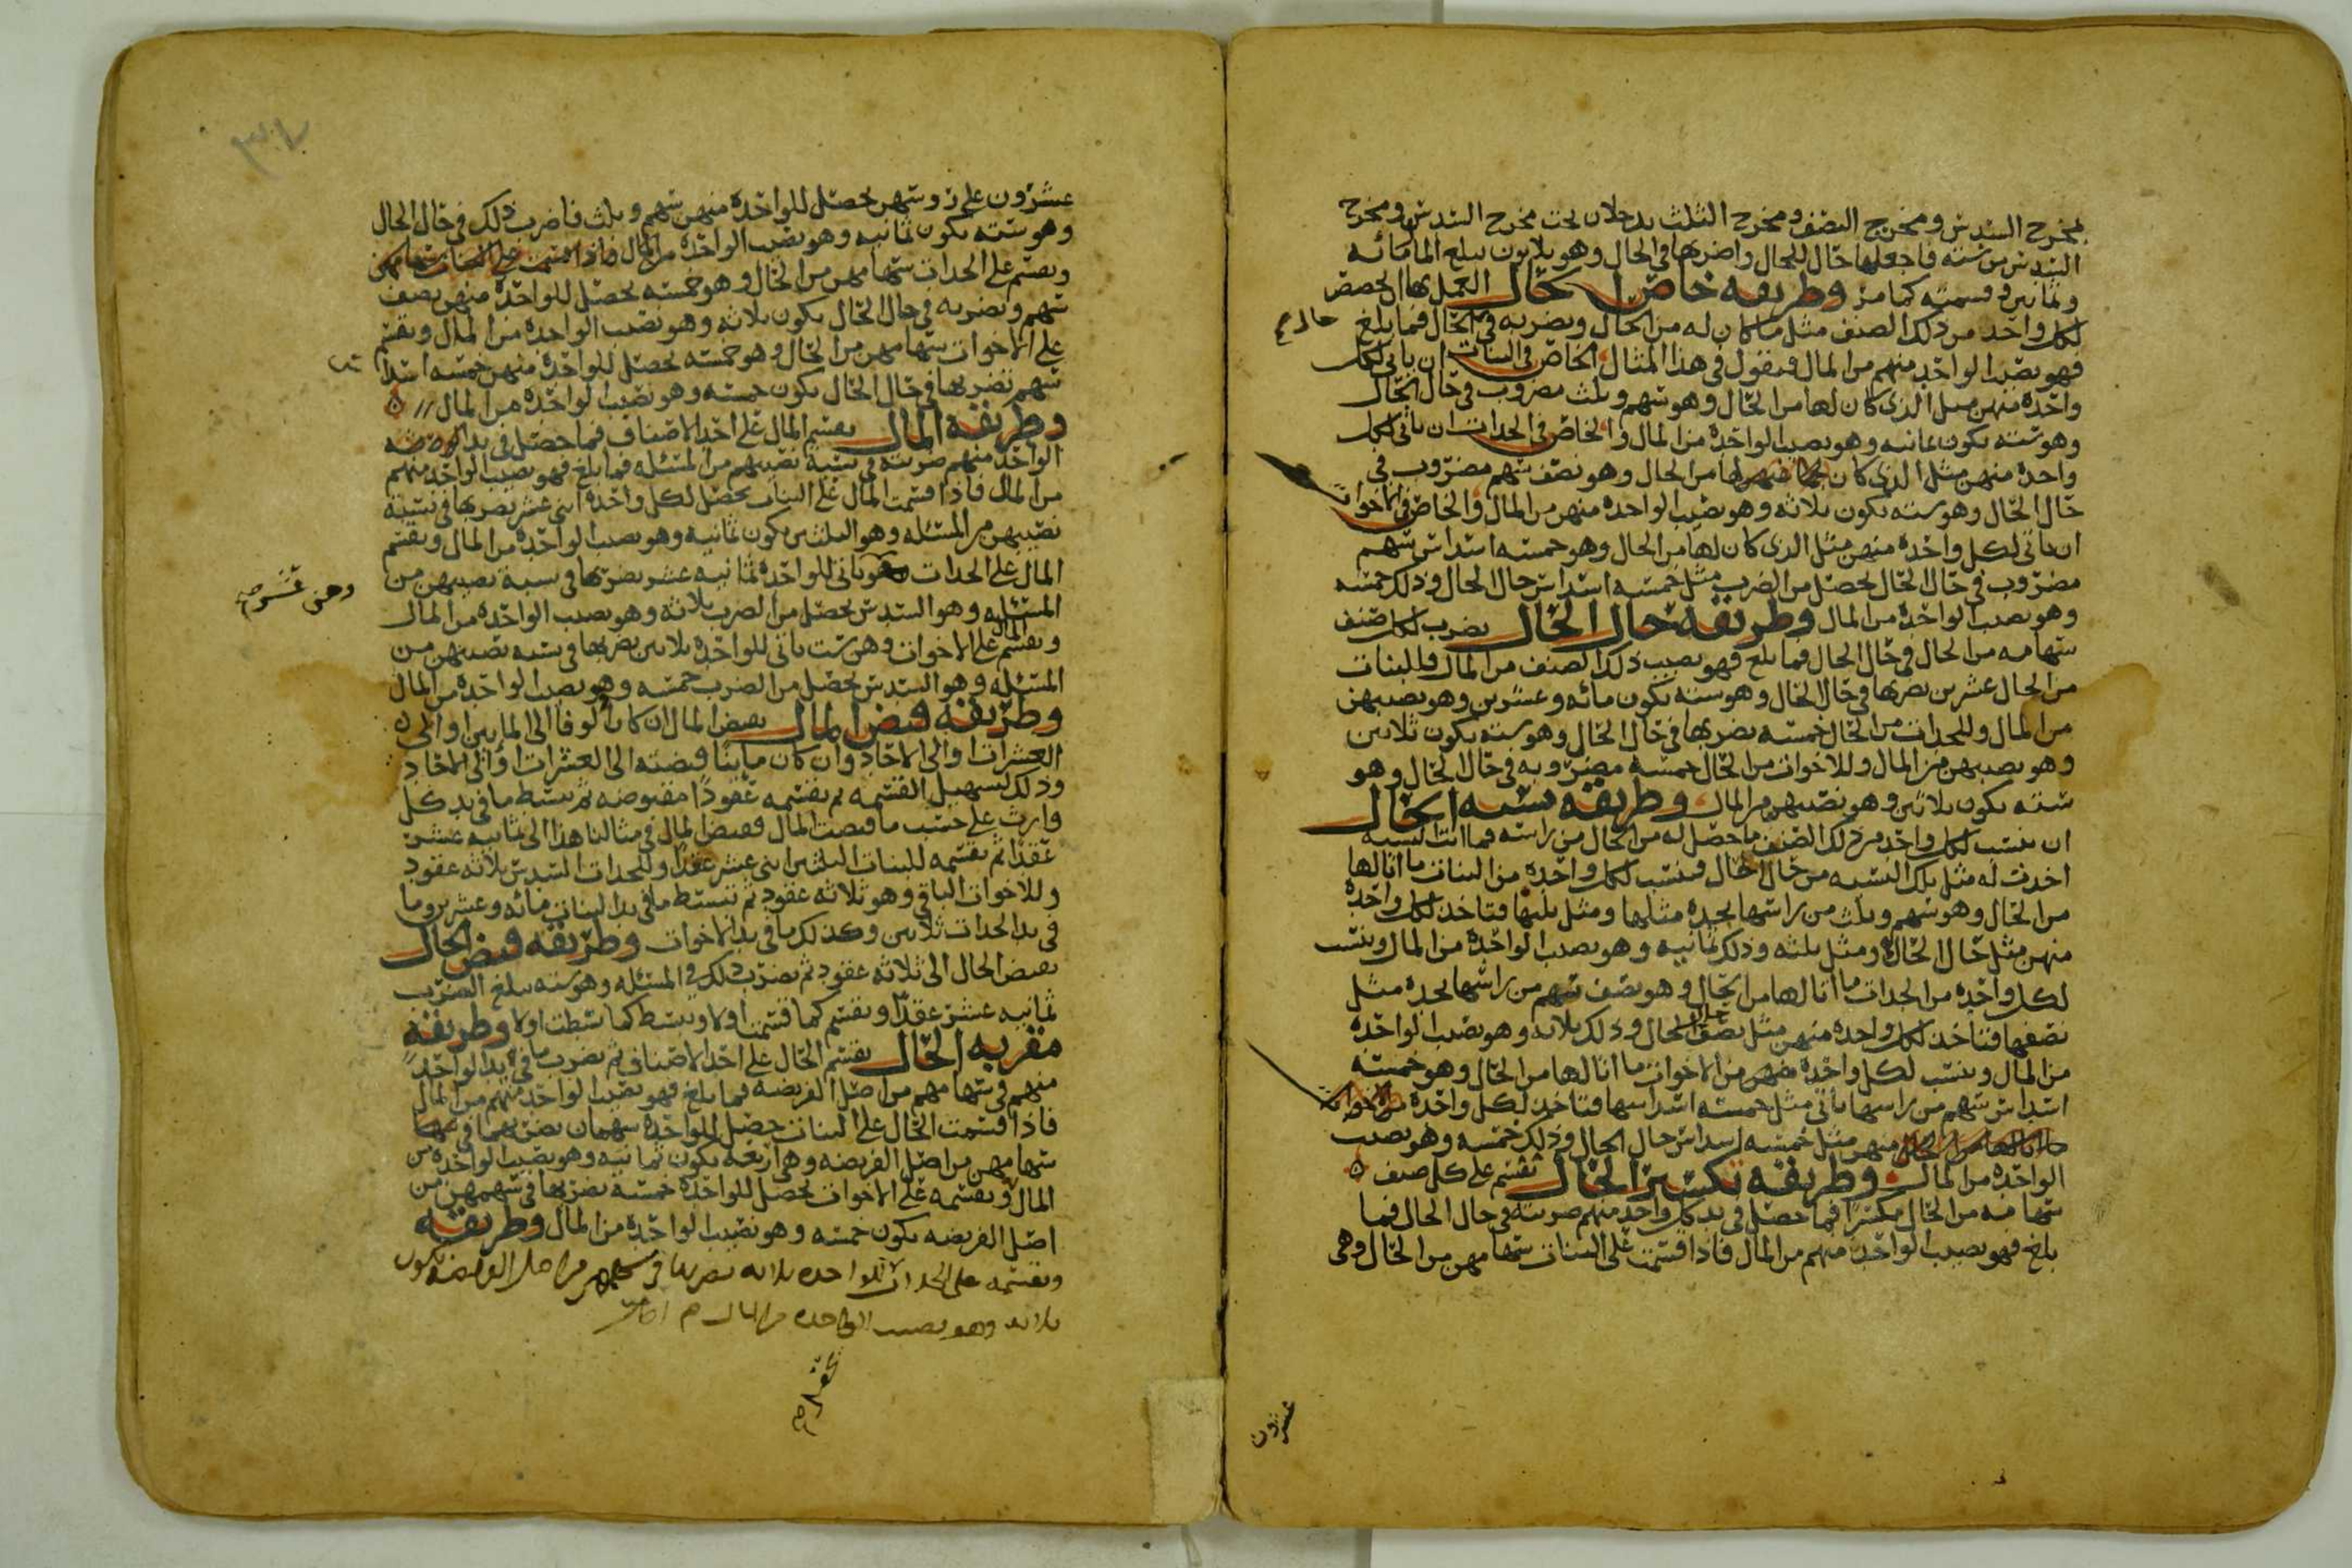 مخرج السدس ومخرج النصف ومخرج الثلث يدخلان تحت مخرج السدس ومخرج
السدس من سته فاجعلها حال للحال واضربها في الحال وهو ثلاثون يبلغ المال مائه
وثمانين وقسمته كما مر وطريقه خاص الحال العمل بها ان تحصص
لكل واحد من ذلك الصنف مثل ما كان له من الحال وتضربه في الحال فما بلغ
حال صح
فهو نصيب الواحد منهم من المال فنقول في هذا المثال الخاص في البنات ان ياتي لكل
واحده منهن مثل الذي كان لها من الحال وهو سهم وثلث مضروب في حال الحال
وهو سته يكون ثمانيه وهو نصيب الواحده من المال والخاص في الجدات ان ياتي لكل
واحده منهن مثل الذي كان لها من الحال وهو نصف سهم مضروب في
حال الحال وهو سته يكون ثلاثه وهو نصيب الواحده منهن من المال والخاص في الاخوات
ان ياتي لكل واحده منهن مثل الذي كان لها من الحال وهو خمسه اسداس سهم
مضروب في حال الحال يحصل من الضرب مثل خمسه اسداس حال الحال وذلك خمسه
وهو نصيب الواحده من المال وطريقه حال الحال يضرب لكل صنف
سهامه من الحال في حال الحال فما بلغ فهو نصيب ذلك الصنف من المال وللبنات
من الحال عشرين نضربها في حال الحال وهو سته يكون مائه وعشرين وهو نصيبهن
من المال وللجدات من الحال خمسه نضربها في حال الحال وهو سته يكون ثلاثين
وهو نصيبهن من المال وللاخوات من الحال خمسه مضروبه في حال الحال وهو
سته يكون ثلاثين وهو نصيبهن من المال وطريقه نسبه الحال
ان ننسب لكل واحد من ذلك الصنف ما حصل له من الحال من راسه فما اتت النسبه
اخذت له مثل تلك النسبه من حال الحال فننسب لكل واحده من البنات ما اتا لها
من الحال وهو سهم وثلث من راسها نجده مثلها ومثل ثلثها فتاخذ لكل واحده
منهن مثل حال الحال ومثل ثلثه وذلك ثمانيه وهو نصيب الواحده من المال وننسب
لكل واحده من الجدات ما اتا لها من الحال وهو نصف سهم من راسها نجده مثل
نصفها فتاخذ لكل واحده منهن مثل نصف حال الحال وذلك ثلاثه وهو نصيب الواحده
من المال وننسب لكل واحده منهن من الاخوات ما اتا لها من الحال وهو خمسه
اسداس سهم من راسها ياتي مثل خمسه اسداسها فتاخذ لكل واحده من الاخوات
منهن مثل خمسه اسداس حال الحال وذلك خمسه وهو نصيب
الواحده من المال وطريقه تكسير الحال نقسم على كل صنف
سهامه من الحال مكسرا فما حصل في يد كل واحد منهم ضربته في حال الحال فما
بلغ فهو نصيب الواحد منهم من المال فاذا قسمت على البنات سهامهن من الحال وهي
عشرون
٣٠٧
عشرون على روسهن يحصل للواحده منهن سهم وثلث فاضرب ذلك في حال الحال
وهو سته يكون ثمانيه وهو نصيب الواحده من المال
ونقسم على الجدات سهامهن من الحال وهو خمسه يحصل للواحده منهن نصف
سهم ونضربه في حال الحال يكون ثلاثه وهو نصيب الواحده من المال ونقسم
على الاخوات سهامهن من الحال وهو خمسه يحصل للواحده منهن خمسه اسداس
سهم نضربها في حال الحال يكون خمسه وهو نصيب الواحده من المال
وطريقه المال نقسم المال على احد الاصناف فما حصل في يد
الواحد منهم ضربته في نسبه نصيبهم من المسئله فما بلغ فهو نصيب الواحد منهم
من المال فاذا قسمت المال على البنات يحصل لكل واحده اثنى عشر نضربها في نسبه
نصيبهن من المسئله وهو الثلثين يكون ثمانيه وهو نصيب الواحده من المال ونقسم
المال على الجدات ياتي للواحده ثمانيه عشر نضربها في نسبه نصيبهن من
وهن عشر صح
المسئله وهو السدس يحصل من الضرب ثلاثه وهو نصيب الواحده من المال
ونقسم المال على الاخوات وهن ست ياتي للواحده ثلاثين نضربها في نسبه نصيبهن من
المسئله وهو السدس يحصل من الضرب خمسه وهو نصيب الواحده من المال
وطريقه قبض المال نقبض المال ان كان الوفا الى المايين او الى
العشرات او الى الاحاد وان كان مايينا قبضته الى العشرات او الى الاحاد
وذلك لتسهيل القسمه ثم نقسمه عقودا مقبوضه ثم نبسط ما في يد كل
وارث على حسب ما قبضت المال فقبض المال في مثالنا هذا الى ثمانيه عشر
عقدا ثم نقسمه للبنات الثلثين اثنى عشر عقدا وللجدات السدس ثلاثه عقود
وللاخوات الباقي وهو ثلاثه عقود ثم نبسط ما في يد البنات مائه وعشرين وما
في يد الجدات ثلاثين وكذلك ما في يد الاخوات وطريقه قبض الحال
نقبض الحال الى ثلاثه عقود ثم نضرب ذلك في المسئله وهو سته يبلغ الضرب
ثمانيه عشر عقدا ونقسم كما قسمت اولا ونبسط كما بسطت اولا وطريقه
مقربه الحال نقسم الحال على احد الاصناف ثم نضرب ما في يد الواحد
منهم في سهامهم من اصل الفريضه فما بلغ فهو نصيب الواحد منهم من المال
فاذا قسمت الحال على البنات حصل للواحده سهمان نضربهما في
سهامهن من اصل الفريضه وهي اربعه يكون ثمانيه وهو نصيب الواحده من
المال ونقسمه على الاخوات يحصل للواحده خمسه نضربها في سهمهن من
اصل الفريضه يكون خمسه وهو نصيب الواحده من المال وطريقه
ونقسمه على الجدات للواحده ثلاثه نضربها في سهمهن من اصل الفريضه يكون
ثلاثه وهو نصيب الواحده من المال